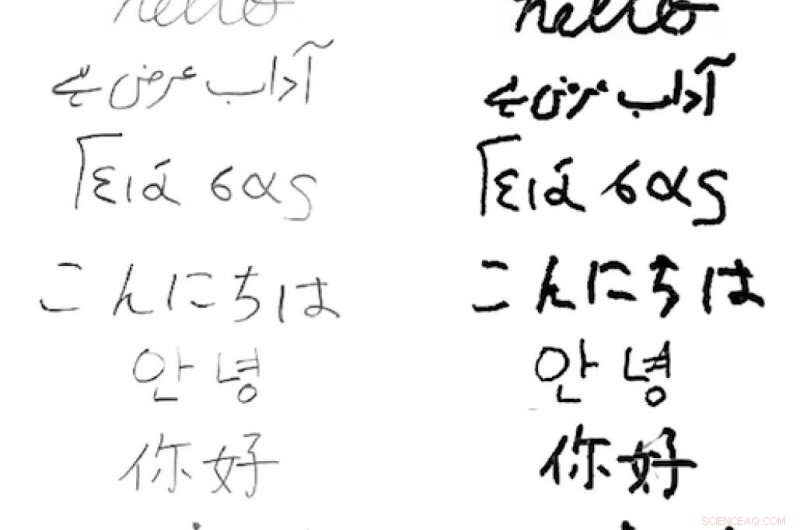 hello hello
آداب عرض ہے آداب عرض ہے
Γειά σας Γειά σας
こんにちは こんにちは
안녕 안녕
你好 你好
SCIENCEAQ.COM